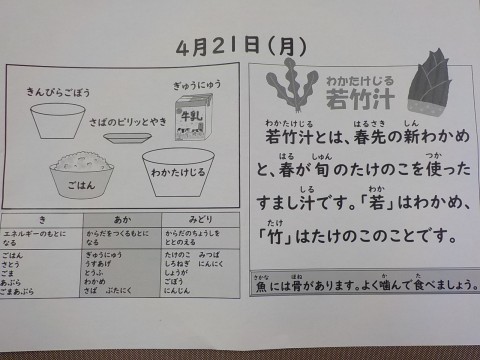 4月21日(月)
きんぴらごぼう
ぎゅうにゅう
牛乳
さばのピリッとやき
ごはん
わかたけじる
き
あか
みどり
エネルギーのもとに
なる
からだをつくるもとに
なる
からだのちょうしを
ととのえる
ごはん
さとう
ごま
あぶら
ごまあぶら
ぎゅうにゅう
うすあげ
とうふ
わかめ
さば ぶたにく
たけのこ みつば
しろねぎ にんにく
しょうが
ごぼう
にんじん
わかたけじる
若竹汁
わかたけじる はるさき しん
若竹汁とは、春先の新わかめ
はる しゅん つか
と、春が旬のたけのこを使った
しる わか
すまし汁です。「若」はわかめ、
たけ
「竹」はたけのこのことです。
さかな ほね か た
魚には骨があります。よく噛んで食べましょう。